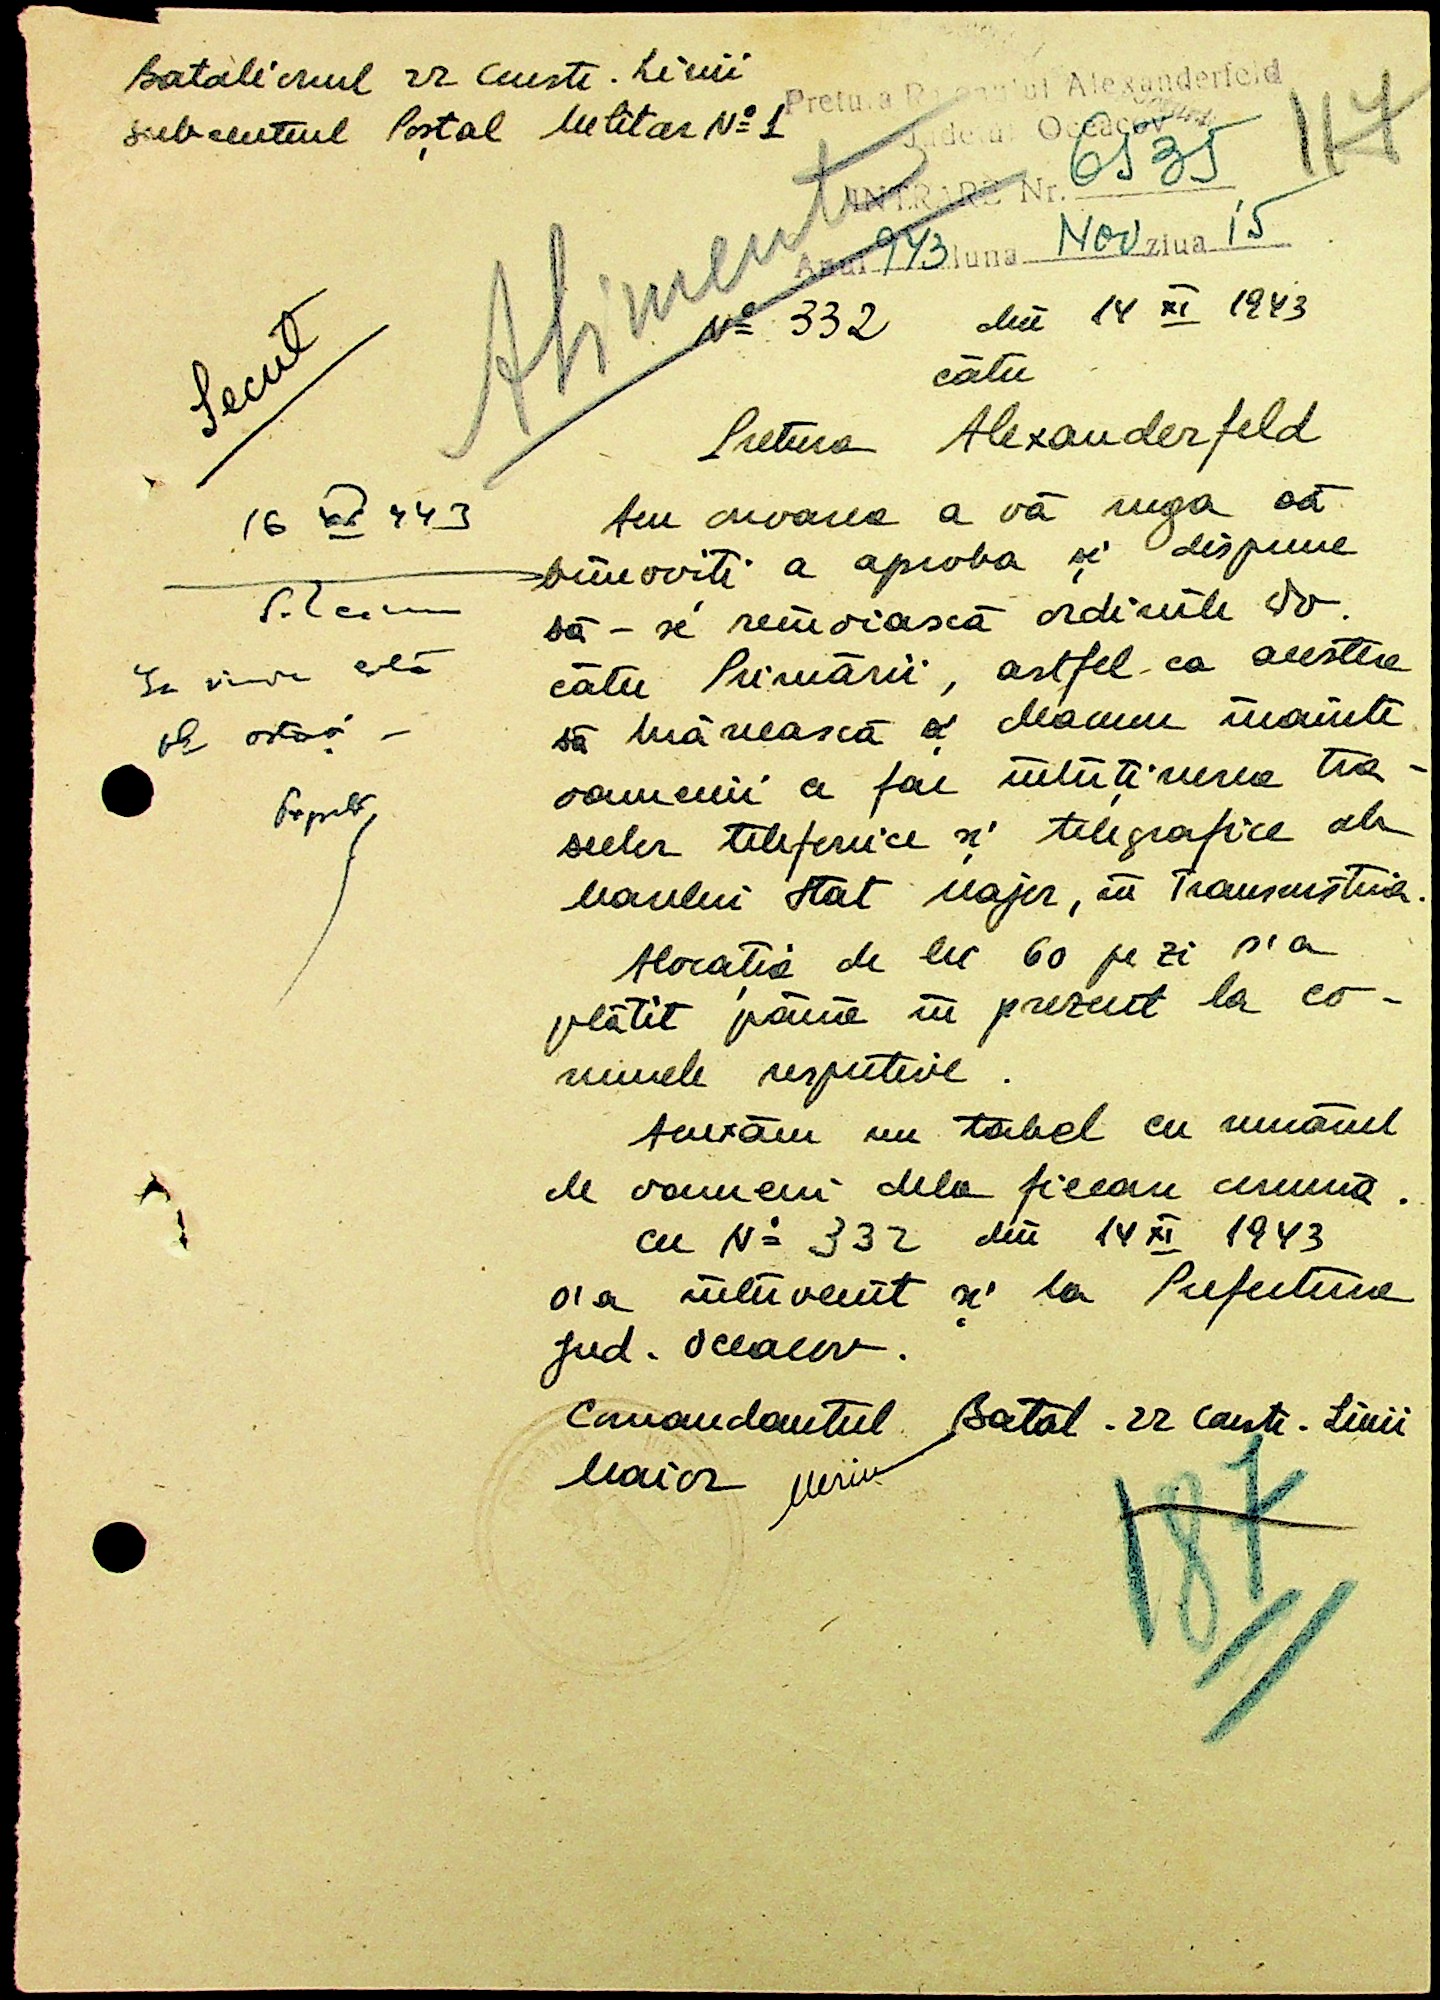 Batalionul 22 Constr. Linii
subcentrul Poștal Militar No 1
Pretura Raionului Alexanderfeld
Județul Oceacov
INTRARE Nr. 6535
Anul 943 luna Nov ziua 15
117
Alimente
No 332 din 14 XI 1943
către
Pretura Alexanderfeld
Secret
16 XI 943
Am onoarea a vă ruga să
binevoiți a aproba și dispune
să-se reînoiască ordinile Dv.
către Primării, astfel ca acestea
să hrănească și deacum înainte
oamenii ce fac întreținerea tra-
seelor telefonice și telegrafice ale
Marelui Stat Major, în Transnistria.
Alocația de lei 60 pe zi s'a
plătit până în prezent la co-
munele respective.
Anexăm un tabel cu numărul
de oameni dela fiecare comună.
cu No 332 din 14 XI 1943
s'a intervenit și la Prefectura
Jud. Oceacov.
Comandantul Batal. 22 Constr. Linii
Maior
187